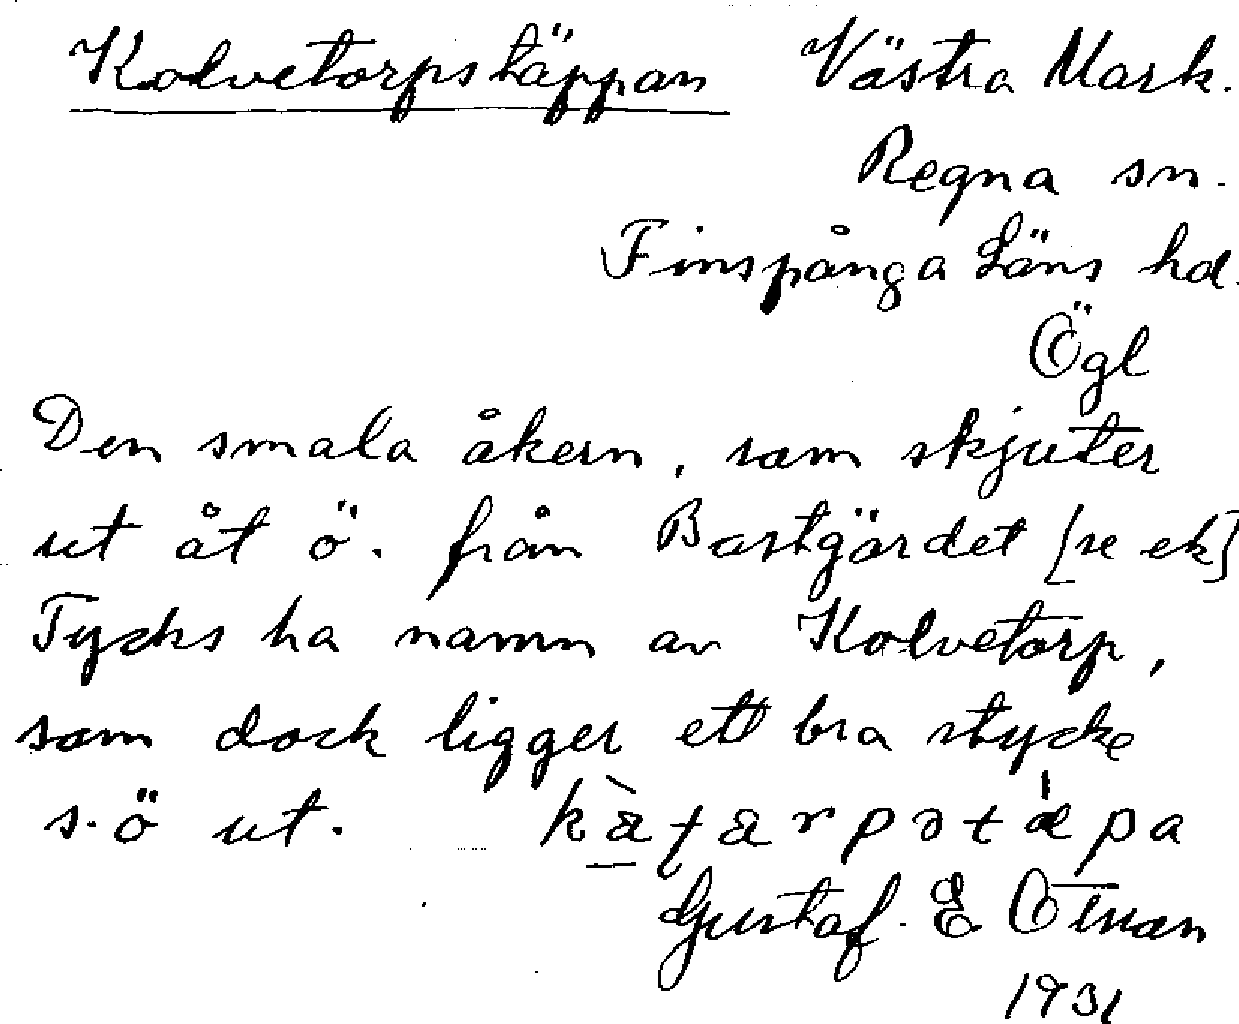 Kolvetorpstäppan Västra Mark.
Regna sn.
Finspånga Läns hd.
Ögl
Den smala åkern, som skjuter
ut åt ö. från Bastgärdet [se ek]
Tycks ha namn av Kolvetorp,
som dock ligger ett bra stycke
s.ö ut.
Gustaf. E
1931